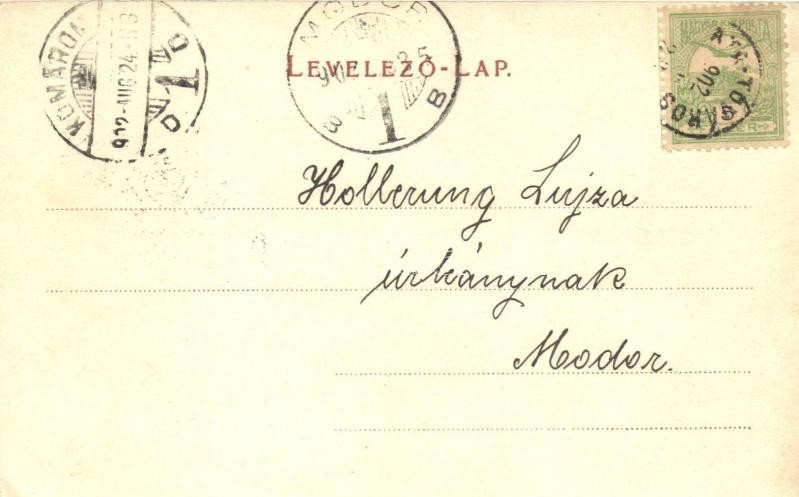 KOMÁROM
922-AUG 24-
D 1 D
MODOR
90
25
B 1 B
LEVELEZŐ-LAP.
MAGYAR KIR. POSTA
902
Hollerung Lujza
úrleánynak
Modor.